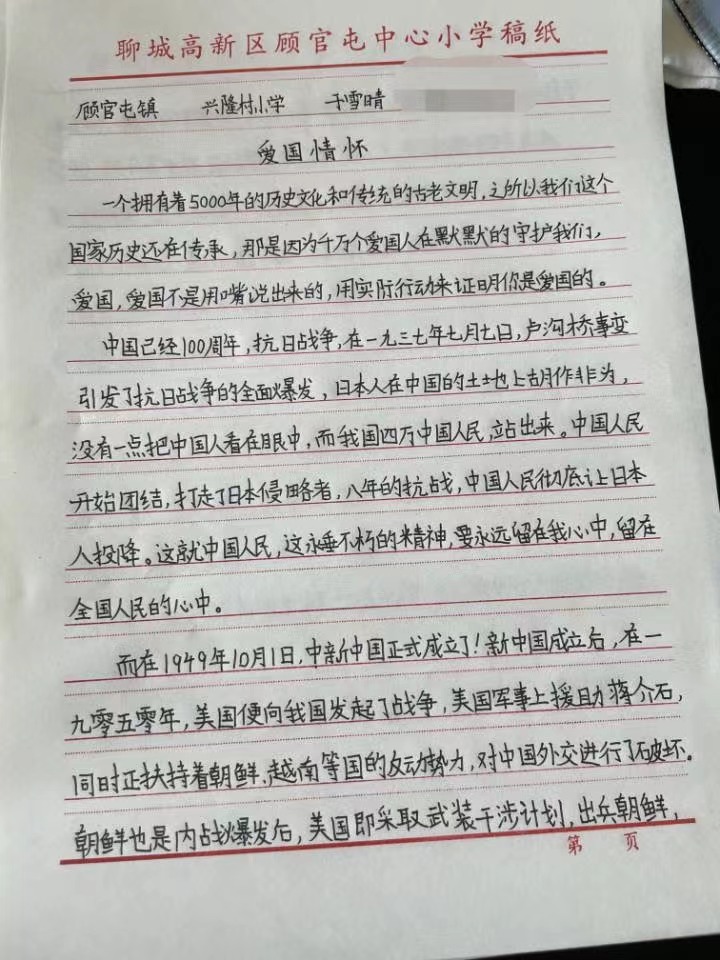 聊城高新区顾官屯中心小学稿纸
顾官屯镇 兴隆村小学 于雪晴
爱国情怀
一个拥有着5000年的历史文化和传统的古老文明,之所以我们这个
国家历史还在传承,那是因为千万个爱国人在默默的守护我们,
爱国,爱国不是用嘴说出来的,用实际行动来证明你是爱国的。
中国已经100周年,抗日战争,在一九三七年七月七日,卢沟桥事变
引发了抗日战争的全面爆发,日本人在中国的土地上胡作非为,
没有一点把中国人看在眼中,而我国四万中国人民,站出来。中国人民
开始团结,打走了日本侵略者,八年的抗战,中国人民彻底让日本
人投降。这就中国人民,这永垂不朽的精神,要永远留在我心中,留在
全国人民的心中。
而在1949年10月1日,中新中国正式成立了!新中国成立后,在一
九零五零年,美国便向我国发起了战争,美国军事上援助蒋介石,
同时正扶持着朝鲜、越南等国的反动势力,对中国外交进行了破坏。
朝鲜也是内战爆发后,美国即采取武装干涉计划,出兵朝鲜,
第 页